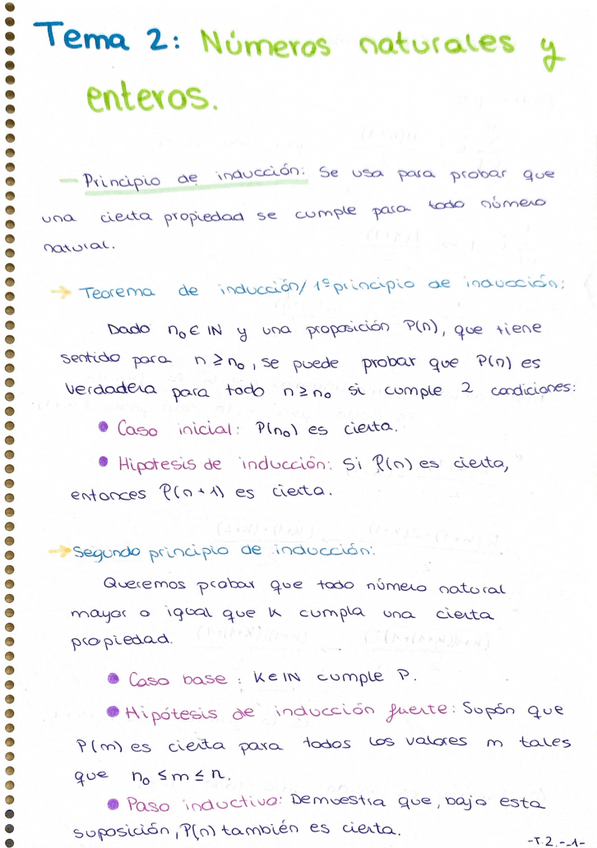 Tema 2: Números naturales y
enteros.
– Principio de inducción: Se usa para probar que
una cierta propiedad se cumple para todo número
natural.
→ Teorema de inducción/1º principio de inducción:
Dado n₀ ∈ IN y una proposición P(n), que tiene
sentido para n ≥ n₀, se puede probar que P(n) es
verdadera para todo n ≥ n₀ si cumple 2 condiciones:
• Caso inicial: P(n₀) es cierta.
• Hipotesis de inducción: Si P(n) es cierta,
entonces P(n+1) es cierta.
→ Segundo principio de inducción:
Queremos probar que todo número natural
mayor o igual que K cumpla una cierta
propiedad.
• Caso base: K ∈ IN cumple P.
• Hipótesis de inducción fuerte: Supón que
P(m) es cierta para todos los valores m tales
que n₀ ≤ m ≤ n.
• Paso inductivo: Demuestra que, bajo esta
suposición, P(n) también es cierta.
-T.2.-1-